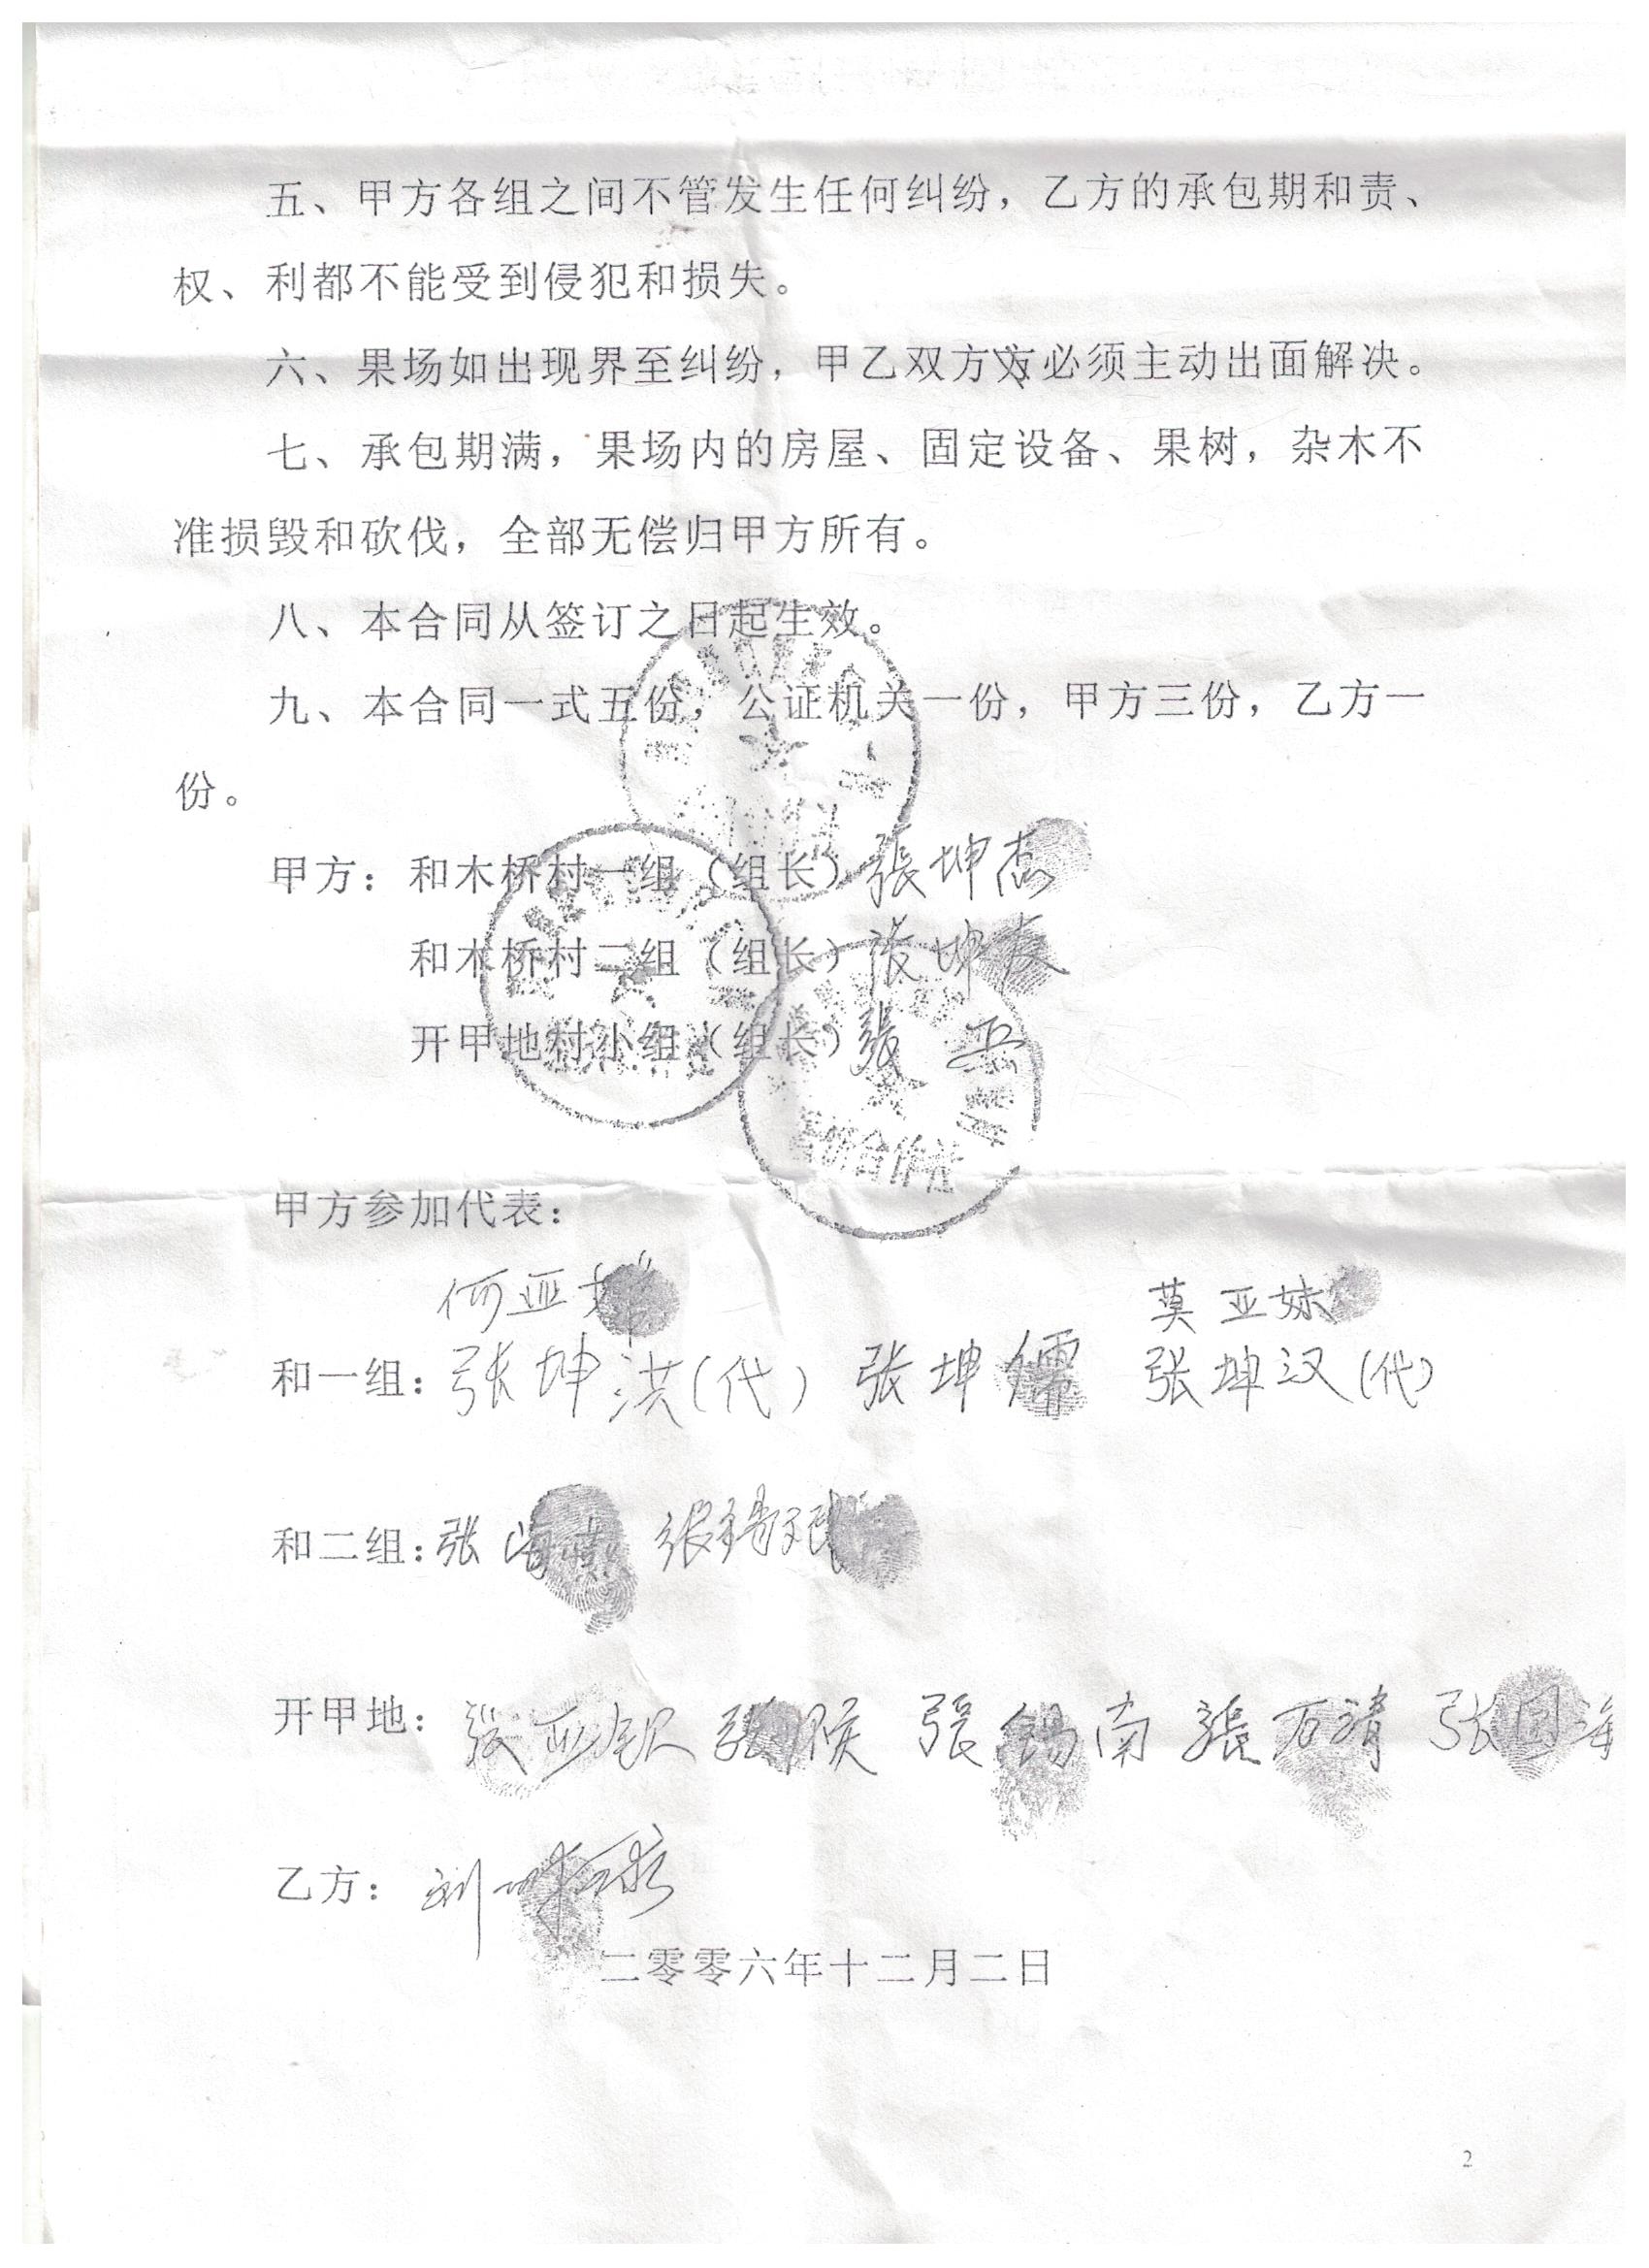 五、甲方各组之间不管发生任何纠纷，乙方的承包期和责、
权、利都不能受到侵犯和损失。
六、果场如出现界至纠纷，甲乙双方方必须主动出面解决。
七、承包期满，果场内的房屋、固定设备、果树，杂木不
准损毁和砍伐，全部无偿归甲方所有。
八、本合同从签订之日起生效。
九、本合同一式五份，公证机关一份，甲方三份，乙方一
份。
甲方：和木桥村一组（组长）張坤杰
和木桥村二组（组长）张坤
开甲地村小组（组长）張
股份合作社
甲方参加代表：
何亚 莫亚妹
和一组：张坤洪(代) 张坤儒 张坤汉(代)
和二组：张海 張锡
开甲地：张亚钦 張 張锡南 張万清 张国海
乙方：刘
二零零六年十二月二日
2